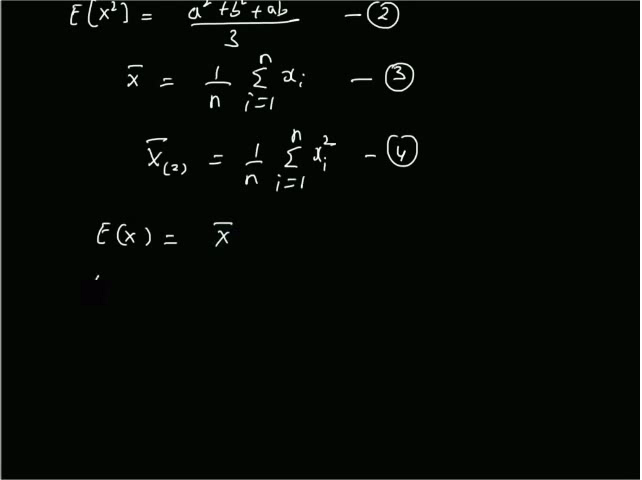 E[x²] = a²+b²+ab / 3 — ②
x̄ = 1/n Σ_{i=1}^{n} x_i — ③
x̄_(2) = 1/n Σ_{i=1}^{n} x_i² — ④
E(x) = x̄